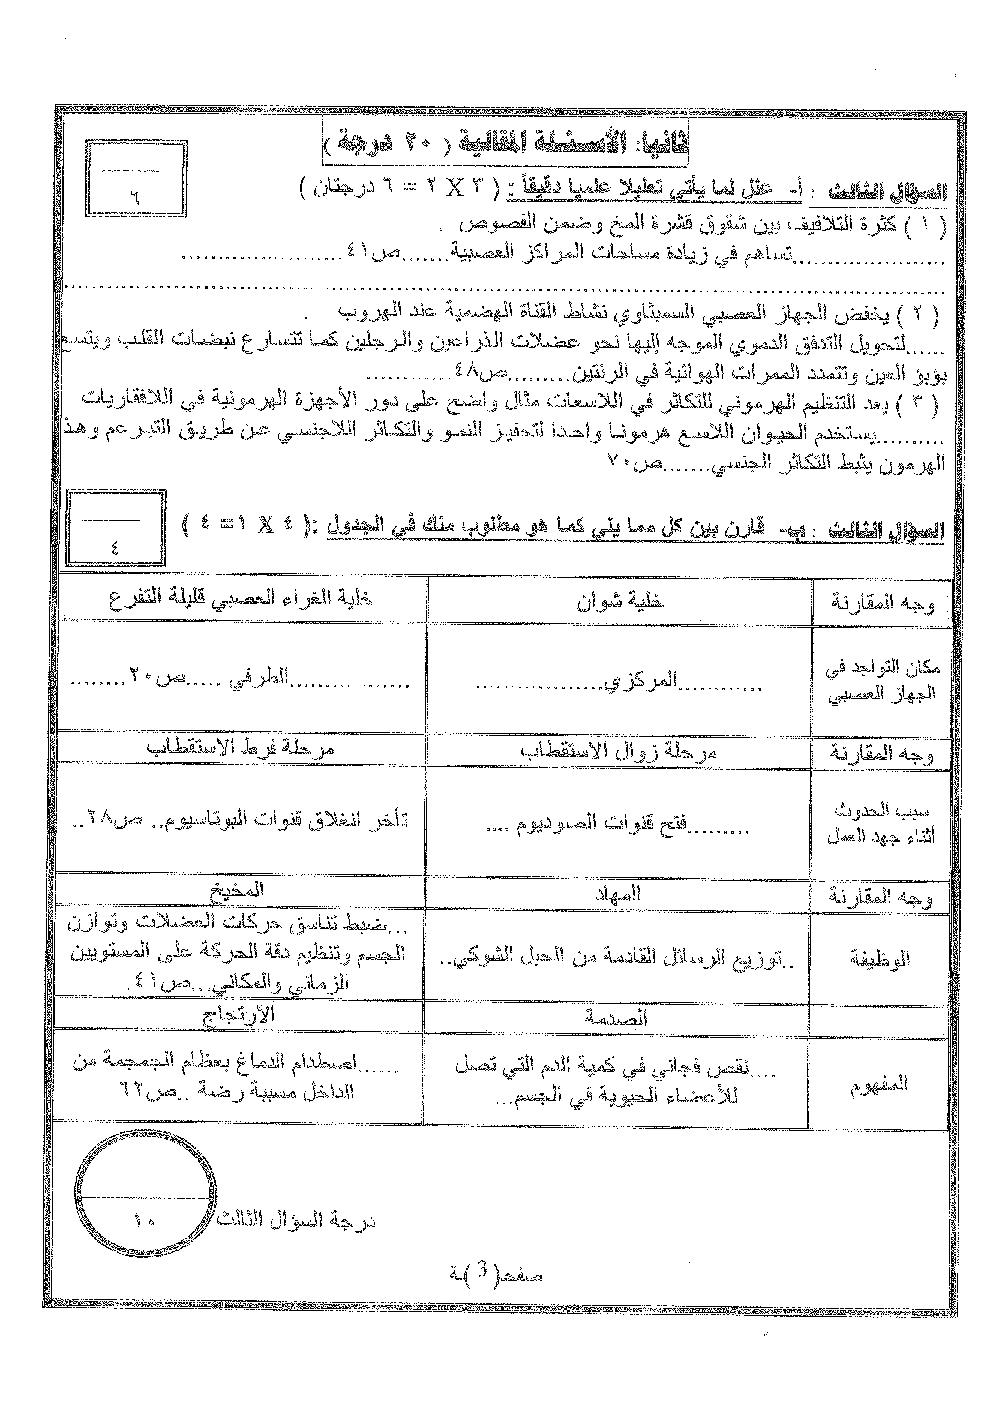 ثانيا: الأسئلة المقالية ( ٢٠ درجة )
٦
السؤال الثالث : أ- علل لما يأتي تعليلا علميا دقيقاً : ( ٣ X ٢ = ٦ درجتان )
( ١ ) كثرة التلافيف بين شقوق قشرة المخ وضمن الفصوص .
......................تساهم في زيادة مساحات المراكز العصبية.......ص٤١......................
( ٢ ) يخفض الجهاز العصبي السمبثاوي نشاط القناة الهضمية عند الهروب .
......لتحويل التدفق الدموي الموجه إليها نحو عضلات الذراعين والرجلين كما تتسارع نبضات القلب ويتسع
بؤبؤ العين وتتمدد الممرات الهوائية في الرئتين.........ص٤٨............
( ٣ ) يعد التنظيم الهرموني للتكاثر في اللاسعات مثال واضح على دور الأجهزة الهرمونية في اللافقاريات
..........يستخدم الحيوان اللاسع هرمونا واحدا لتحفيز النمو والتكاثر اللاجنسي عن طريق التبرعم وهذ
الهرمون يثبط التكاثر الجنسي.......ص٧٠
٤
السؤال الثالث : ب- قارن بين كل مما يلي كما هو مطلوب منك في الجدول : ( ٤ X ١ = ٤ )
وجه المقارنة	خلية شوان	خلية الغراء العصبي قليلة التفرع
مكان التواجد في الجهاز العصبي	............المركزي...................	................الطرفي .....ص٢٠........
وجه المقارنة	مرحلة زوال الاستقطاب	مرحلة فرط الاستقطاب
سبب الحدوث أثناء جهد العمل	.........فتح قنوات الصوديوم ....	تأخر انغلاق قنوات البوتاسيوم.. ص٢٨..
وجه المقارنة	المهاد	المخيخ
الوظيفة	..توزيع الرسائل القادمة من الحبل الشوكي..	...ضبط تناسق حركات العضلات وتوازن الجسم وتنظيم دقة الحركة على المستويين الزماني والمكاني...ص٤١
الصدمة	الارتجاج
المفهوم	....نقص فجائي في كمية الدم التي تصل للأعضاء الحيوية في الجسم...	......اصطدام الدماغ بعظام الجمجمة من الداخل مسببة رضة ..ص٦٢
١٠
درجة السؤال الثالث
صفحـ(3)ـة